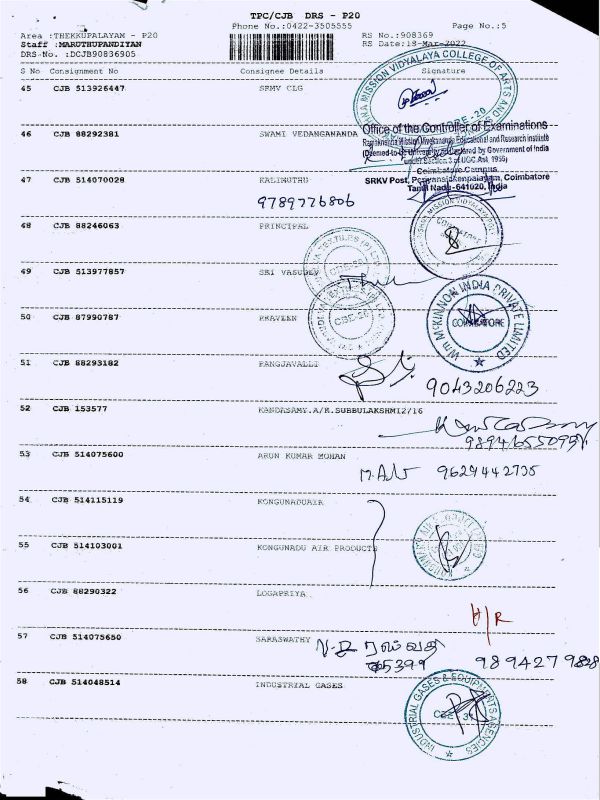 TPC/CJB DRS - P20
Phone No.:0422-3505555 Page No.:5
Area :THEKKUPALAYAM - P20 RS No.:908369
Staff :MARUTHUPANDIYAN RS Date:18-Mar-2022
DRS-No. :DCJB90836905
S No Consignment No Consignee Details Signature
45 CJB 513926447 SRMV CLG
MISSION VIDYALAYA COLLEGE OF ARTS AND
46 CJB 88292381 SWAMI VEDANGANANDA
Office of the Controller of Examinations
Ramakrishna Mission Vivekananda Educational and Research Institute
(Deemed-to-be University as declared by Government of India
under Section 3 of UGC Act, 1956)
Coimbatore Campus
SRKV Post, Periyanaickenpalayam, Coimbatore
Tamil Nadu-641020, India
47 CJB 514070028 KALIMUTHU
9789776806
48 CJB 88246063 PRINCIPAL
49 CJB 513977857 SRI VASUDEV
CBE-20
50 CJB 87990787 PRAVEEN
W/m McKINNON INDIA PRIVATE LIMITED
COIMBATORE
51 CJB 88293182 PANGJAVALLI
9043206223
52 CJB 153577 KANDASAMY.A/K.SUBBULAKSHMI2/16
53 CJB 514075600 ARUN KUMAR MOHAN
9629442735
54 CJB 514115119 KONGUNADUAIR
55 CJB 514103001 KONGUNADU AIR PRODUCTS
56 CJB 88290322 LOGAPRIYA
57 CJB 514075650 SARASWATHY
58 CJB 514048514 INDUSTRIAL GASES
INDUSTRIAL GASES & EQUIPMENTS AGENCIES